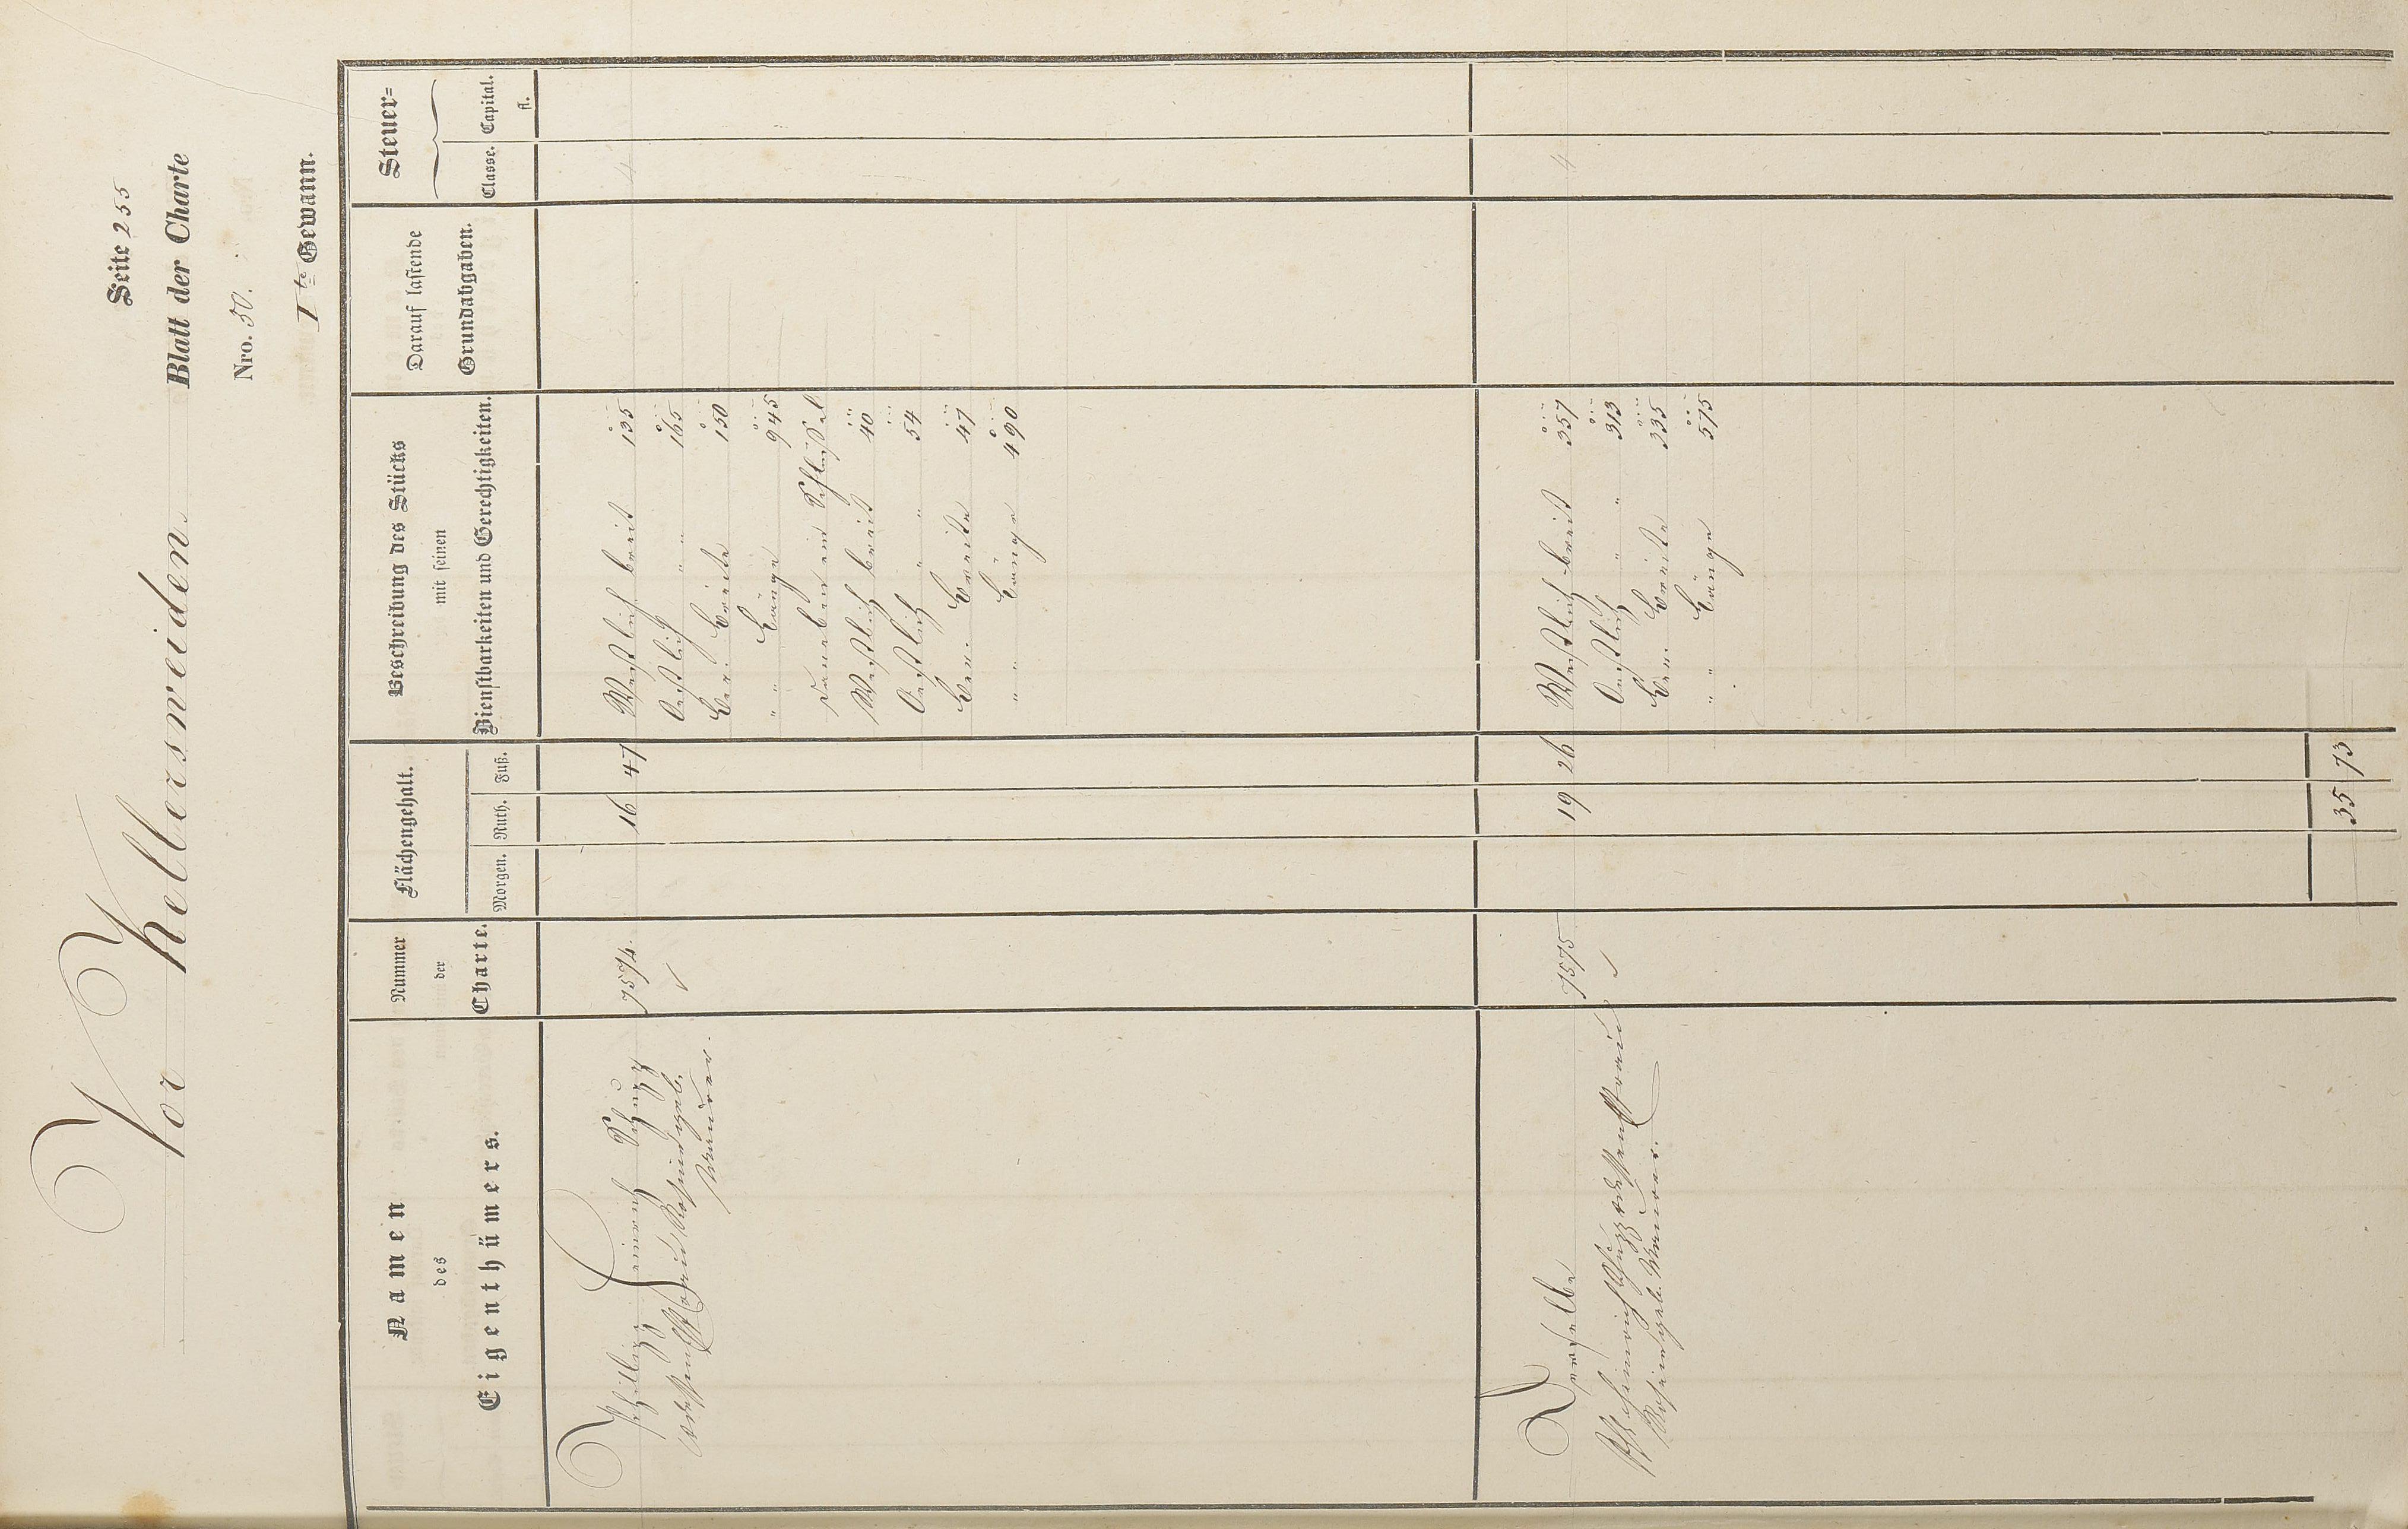 Seite 255
Vor Kellersweiden.
Blatt der Charte
Nro. 50.
I te Gewann.
Namen
des
Eigenthümers.
Nummer
der
Charte.
Flächengehalt.
Morgen. Ruth. Fuß.
Beschreibung des Stücks
mit seinen
Dienstbarkeiten und Gerechtigkeiten.
Darauf lastende
Grundabgaben.
Steuer=
Classe. Capital.
fl.
Philipp Schupp
7574.
16 47
4
Westlich breit 135
Oestlich " " 165
Ver. Breite 150
" " Länge 945
daneben ein Schlüssel
Westlich breit 40
Oestlich " " 54
Ver. Breite 47
" " Länge 490
Derselbe
7575
19 26
4
Westlich breit 357
Oestlich " " 313
Ver. Breite 335
" " Länge 575
35 73